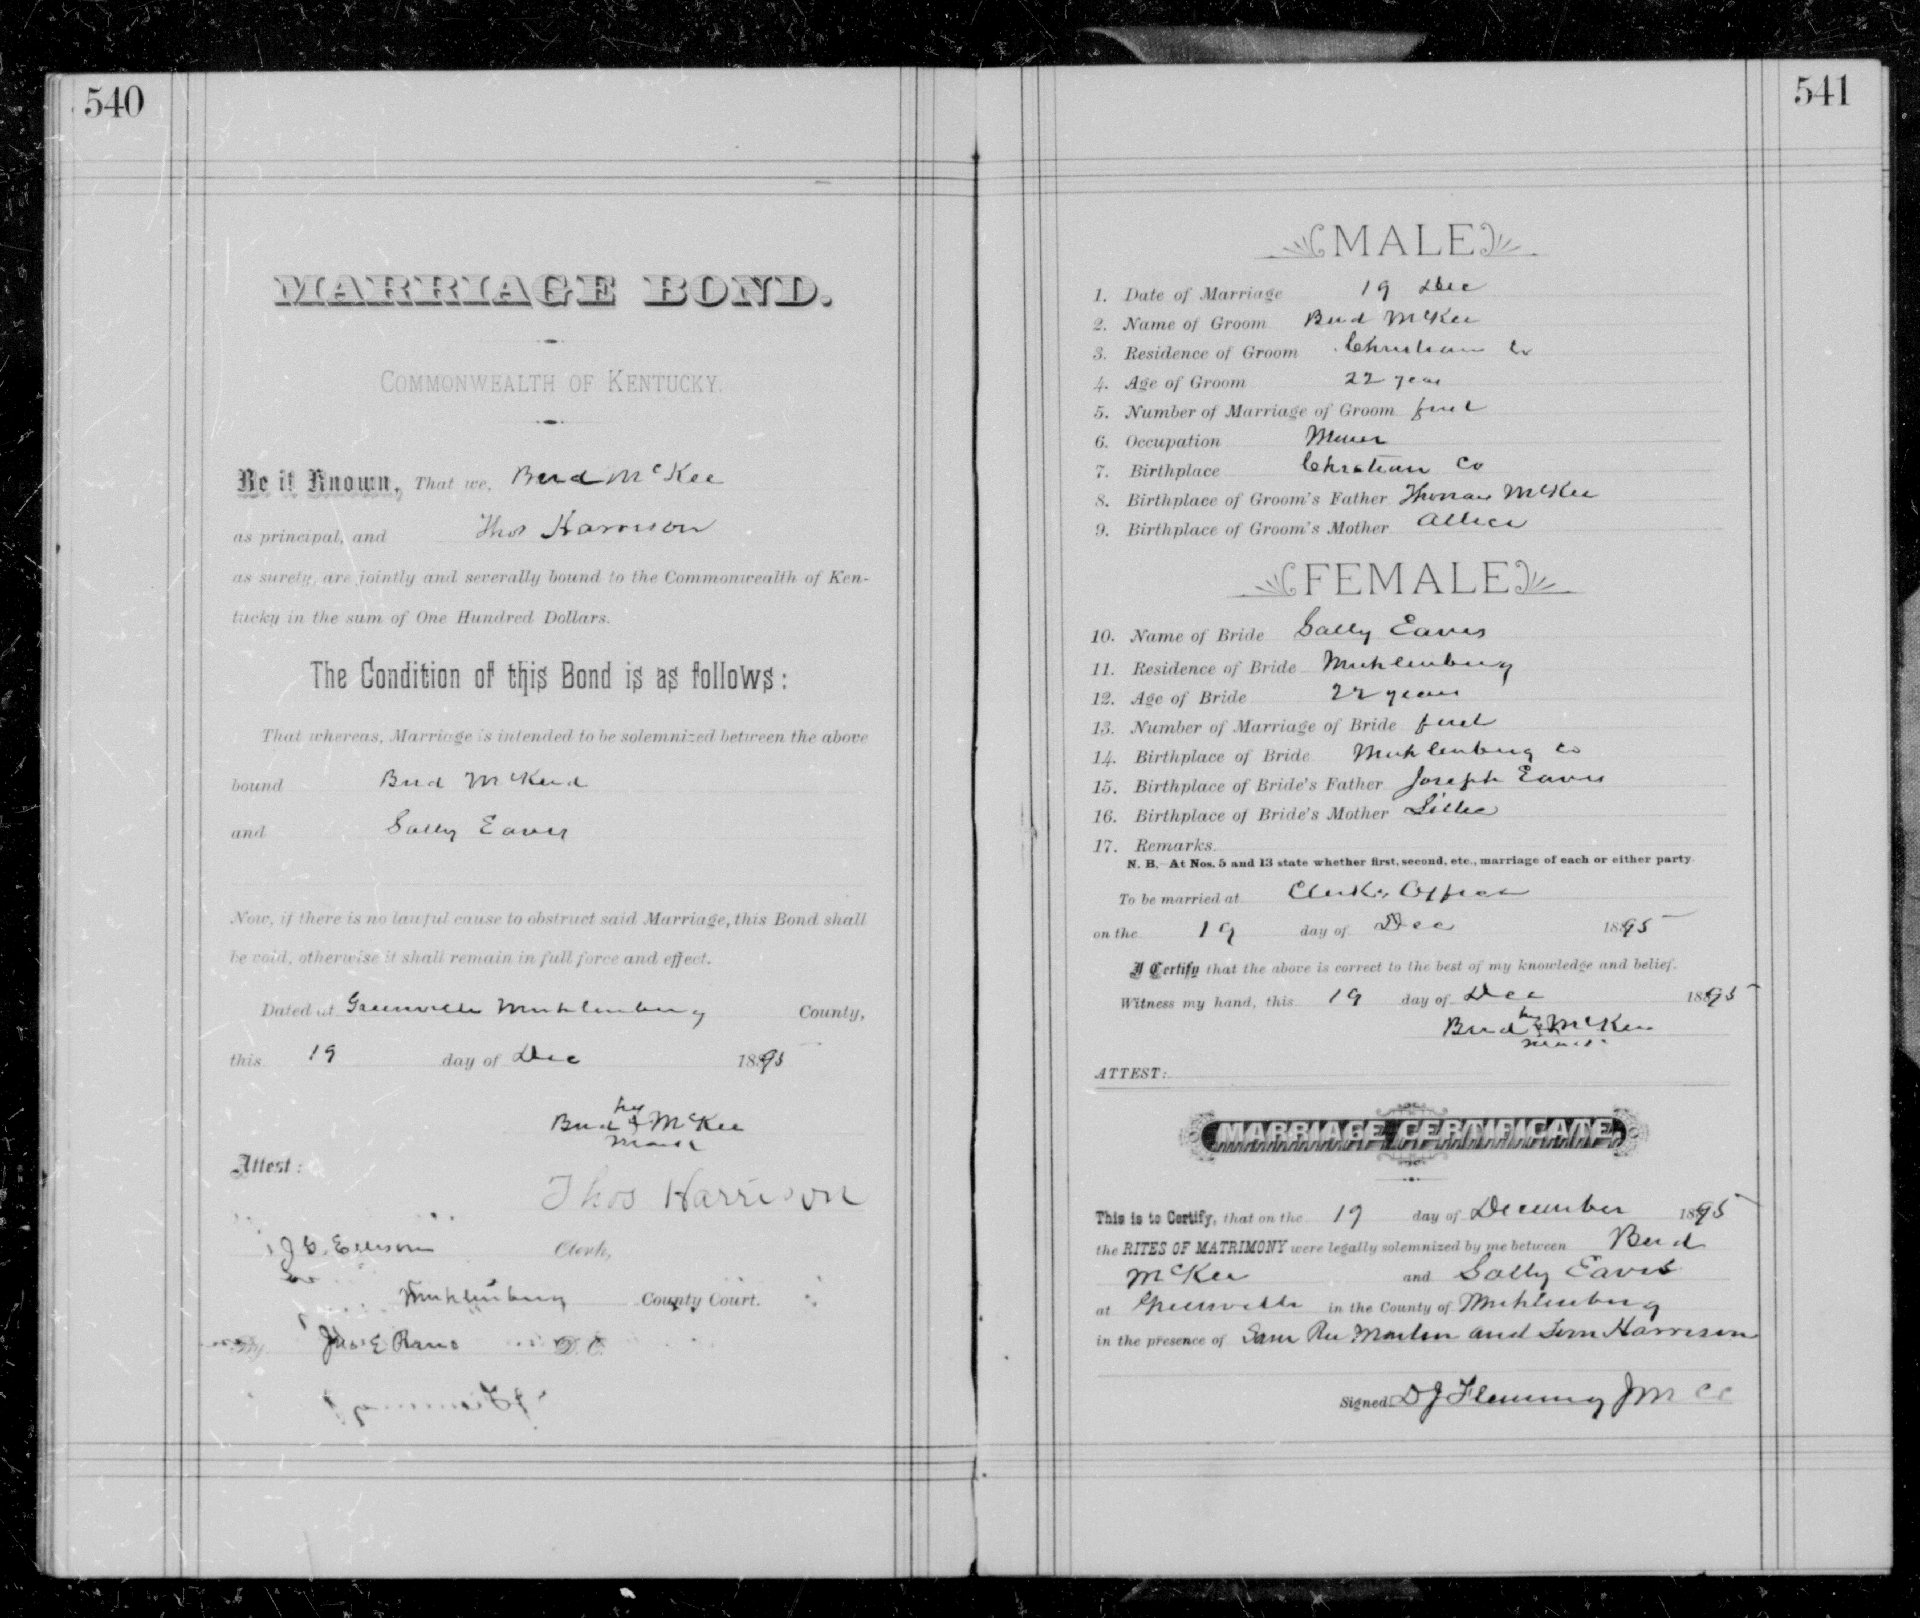 540
MARRIAGE BOND.
COMMONWEALTH OF KENTUCKY.
Be it Known, That we, Bud McKee
as principal, and Thos Harrison
as surety, are jointly and severally bound to the Commonwealth of Ken-
tucky in the sum of One Hundred Dollars.
The Condition of this Bond is as follows:
That whereas, Marriage is intended to be solemnized between the above
bound Bud McKee
and Sally Eaves
Now, if there is no lawful cause to obstruct said Marriage, this Bond shall
be void, otherwise it shall remain in full force and effect.
Dated at Greenville Muhlenburg County,
this 19 day of Dec 1895
his
Bud x McKee
mark
Attest:
Thos Harrison
Clerk,
Muhlenburg County Court.
By D. C.
541
MALE
1. Date of Marriage 19 Dec
2. Name of Groom Bud McKee
3. Residence of Groom Christian Co
4. Age of Groom 22 years
5. Number of Marriage of Groom first
6. Occupation Miner
7. Birthplace Christian Co
8. Birthplace of Groom's Father Thomas McKee
9. Birthplace of Groom's Mother Allice
FEMALE
10. Name of Bride Sally Eaves
11. Residence of Bride Muhlenburg
12. Age of Bride 22 years
13. Number of Marriage of Bride first
14. Birthplace of Bride Muhlenburg Co
15. Birthplace of Bride's Father Joseph Eaves
16. Birthplace of Bride's Mother Lillie
17. Remarks.
N. B. At Nos. 5 and 13 state whether first, second, etc., marriage of each or either party.
To be married at Clerks Office
on the 19 day of Dec 1895
I Certify that the above is correct to the best of my knowledge and belief.
Witness my hand, this 19 day of Dec 1895
his
Bud x McKee
mark
ATTEST:
MARRIAGE CERTIFICATE
This is to Certify, that on the 19 day of December 1895
the RITES OF MATRIMONY were legally solemnized by me between Bud
McKee and Sally Eaves
at Greenville in the County of Muhlenburg
in the presence of Sam Martin and Tom Harrison
Signed. D J Fleming J M C C